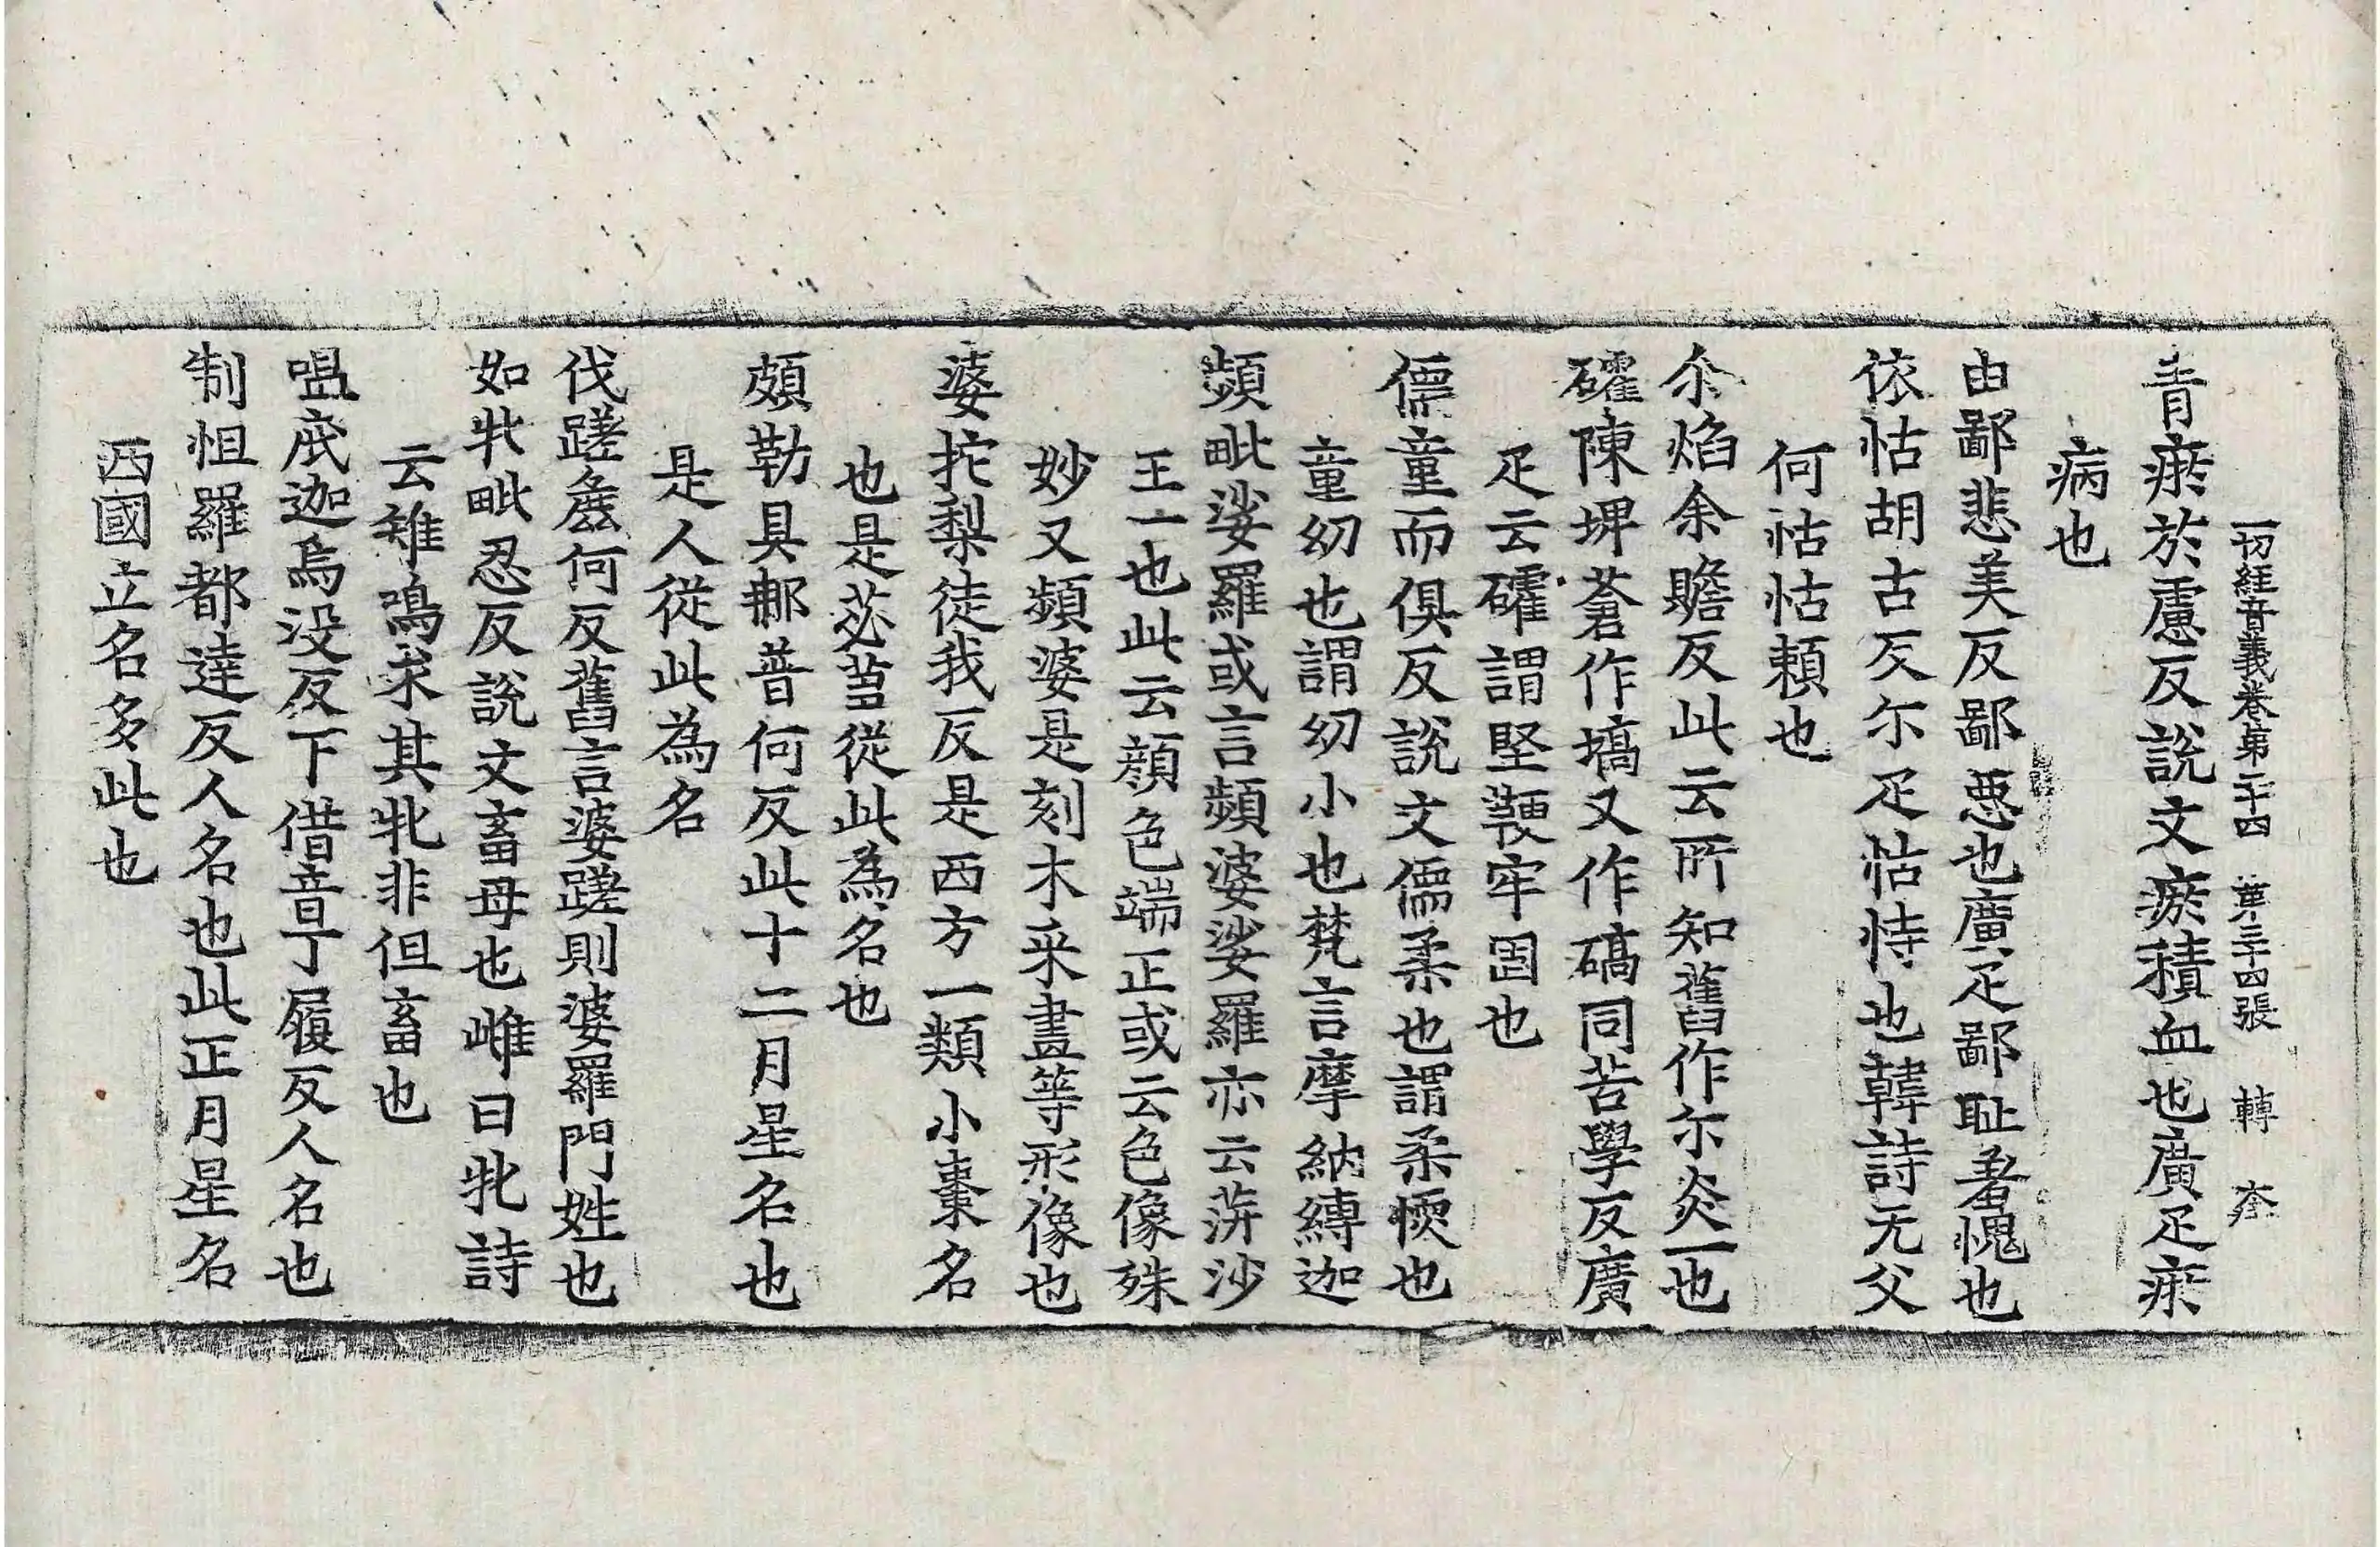 一切經音義卷第二十四 第三十四張 轉 夲
青瘀於慮反說文瘀積血也廣疋瘀
病也
由鄙悲美反鄙惡也廣疋鄙耻羞愧也
依怙胡古反尓疋怙恃也韓詩无父
何怙怙頼也
尒焰余贍反此云所知舊作尓炎一也
礭陳埤蒼作塙又作碻同苦學反廣
疋云礭謂堅鞕牢固也
儒童而俱反說文儒柔也謂柔愞也
童幼也謂幼小也梵言摩納縛迦
頻毗娑羅或言頻婆娑羅亦云蓱沙
王一也此云顔色端正或云色像殊
妙又頻婆是刻木采畫等形像也
婆拕梨徒我反是西方一類小棗名
也是苾芻從此為名也
頗勒具那普何反此十二月星名也
是人從此為名
伐蹉麁何反舊言婆蹉則婆羅門姓也
如牝毗忍反說文畜母也雌曰牝詩
云雉鳴求其牝非但畜也
嗢底迦烏没反下借音丁履反人名也
制怛羅都達反人名也此正月星名
西國立名多此也